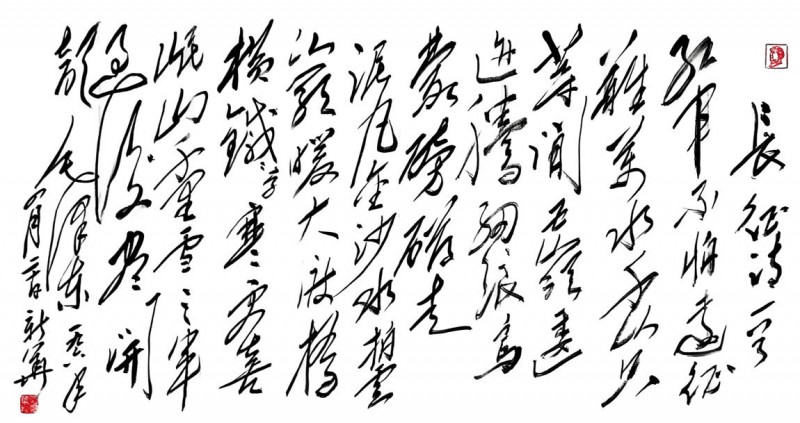 長征诗一首
红軍不怕遠征
難萬水千山只
等閒五嶺逶
迤騰细浪烏
蒙磅礴走
泥丸金沙水拍雲
崖暖大渡橋
横鐵索寒更喜
岷山千里雪三軍
過後盡開
颜 毛澤东